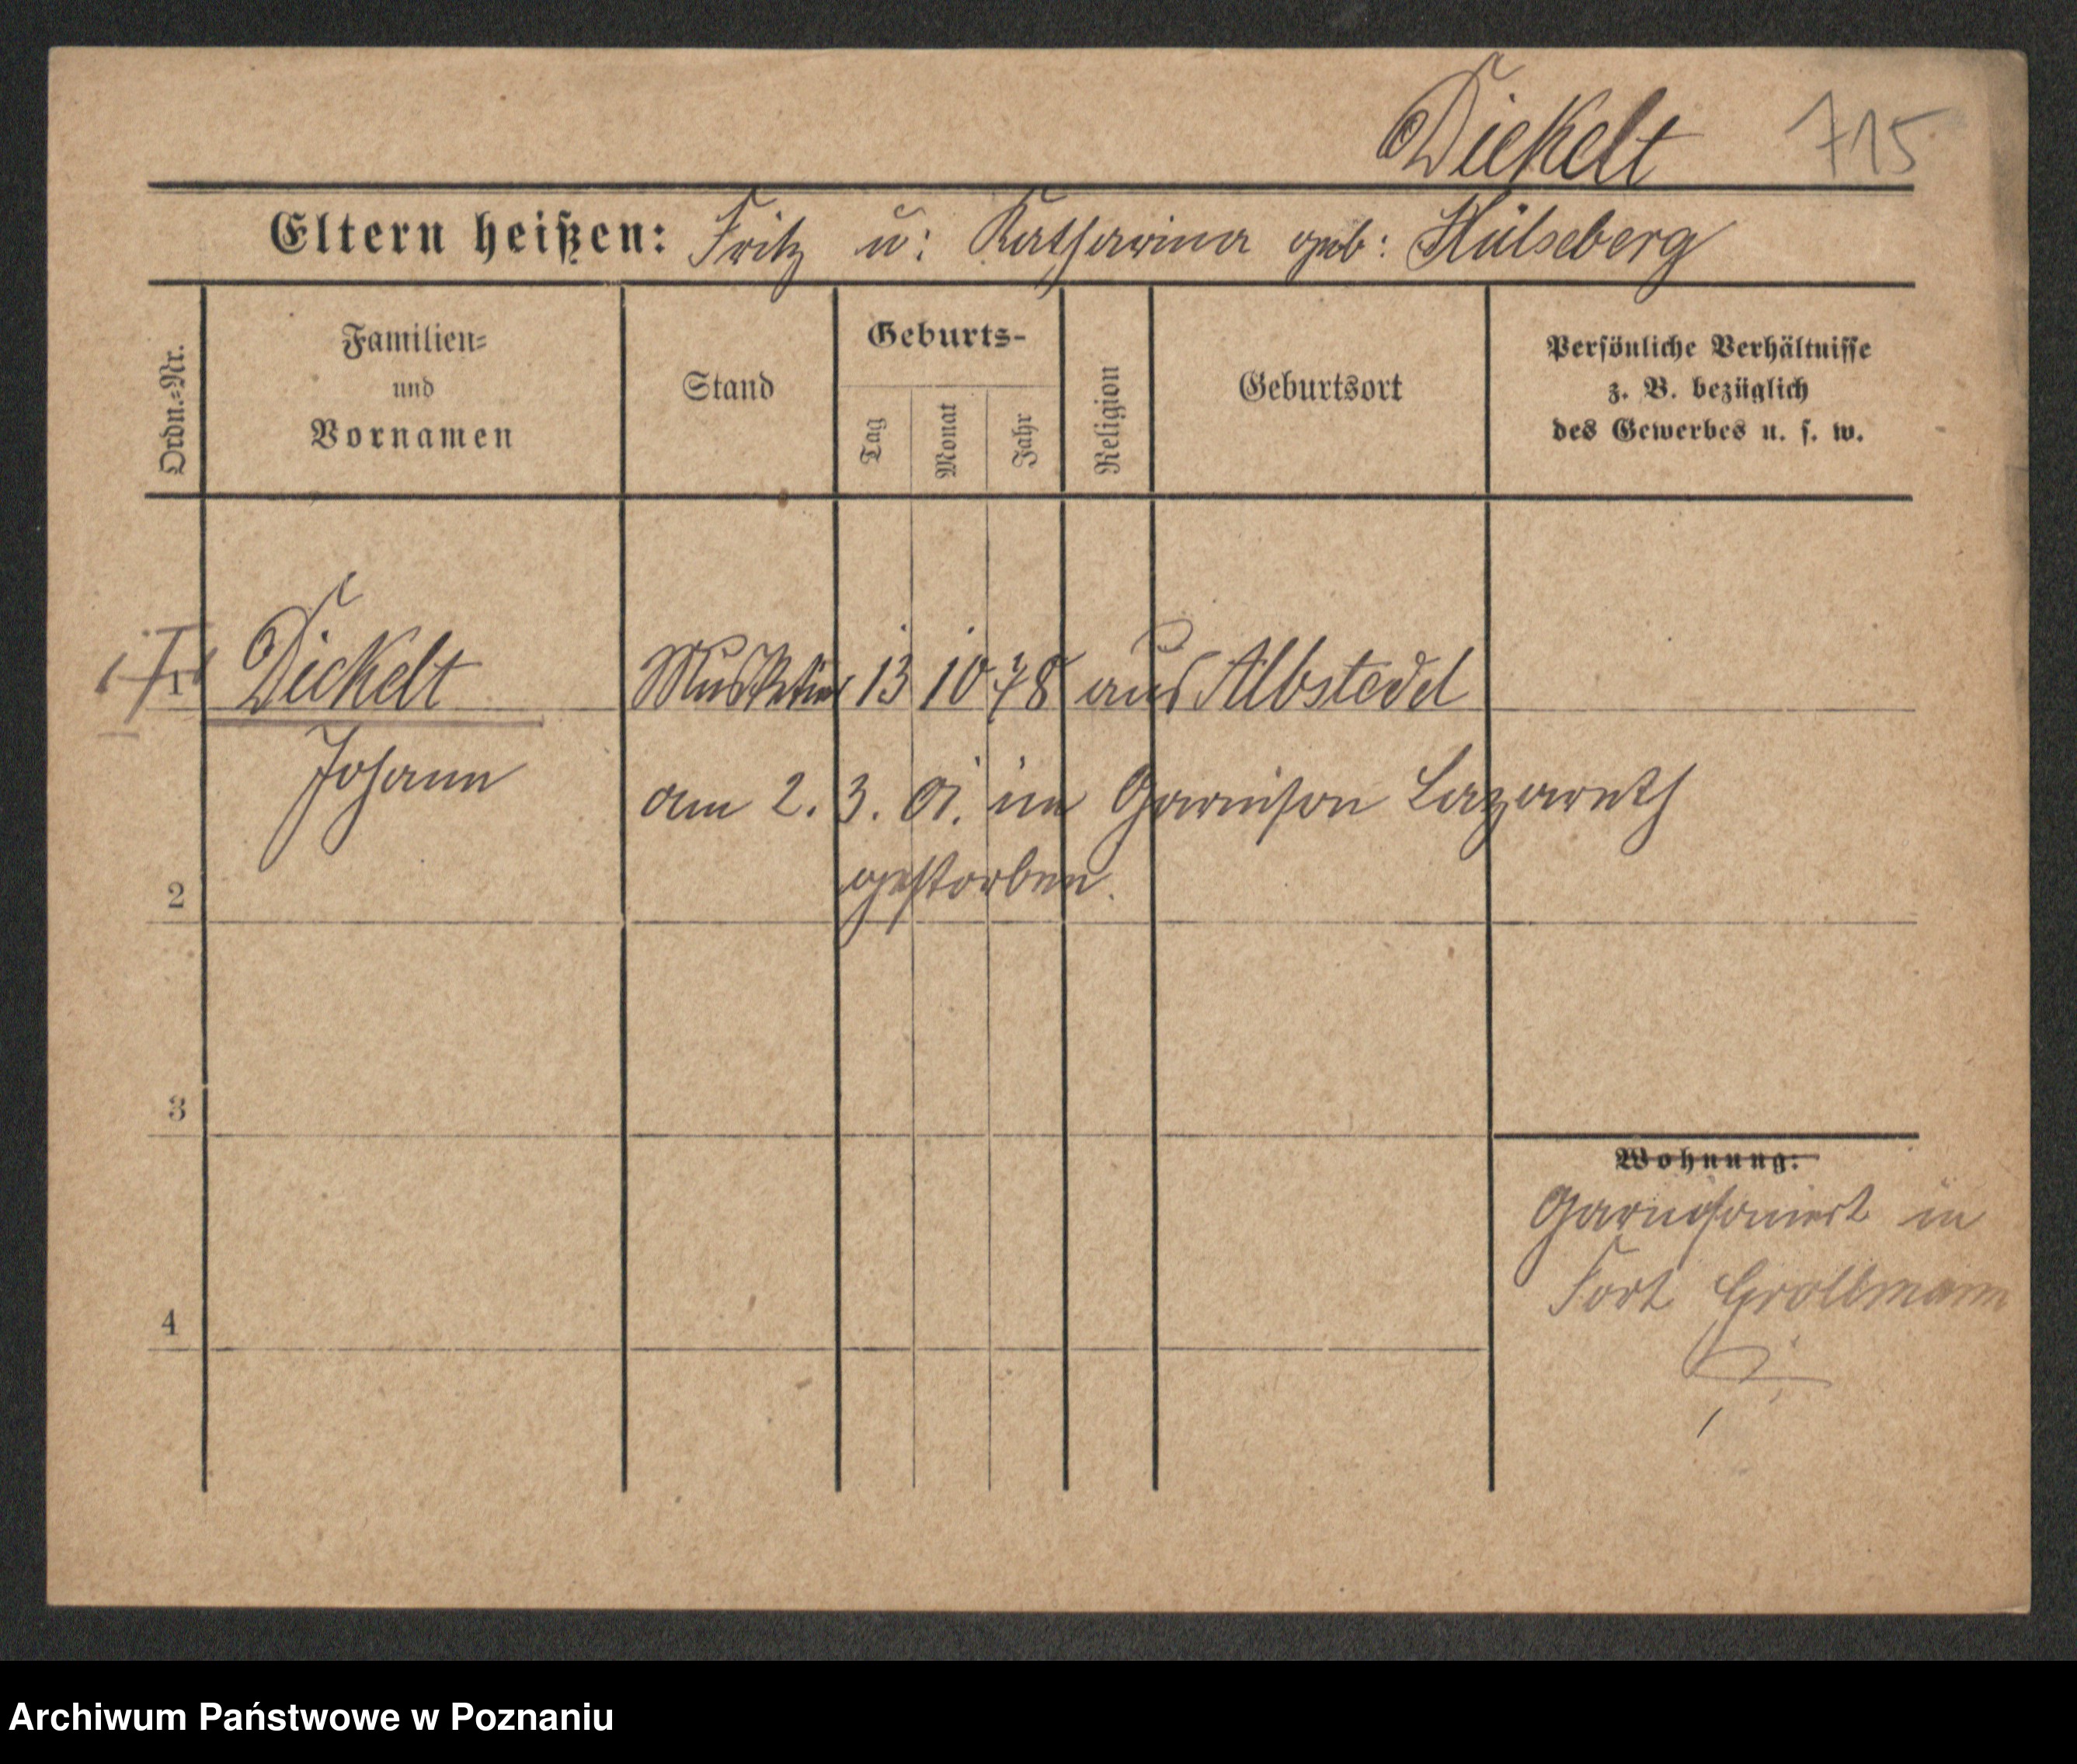 Dickelt 715
Eltern heißen: Fritz u: Katharina geb: Hülseberg
Ordn.=Nr.
Familien=
und
Vornamen
Stand
Geburts-
Tag
Monat
Jahr
Religion
Geburtsort
Persönliche Verhältnisse
z. B. bezüglich
des Gewerbes u. s. w.
1 Dickelt Musketier 13 10 78 aus Albstedt
Johann am 2. 3. 01. im Garnison Lazareth
2 gestorben.
3
Wohnung:
Garnisoniert in
Fort Grollmann
4
Archiwum Państwowe w Poznaniu